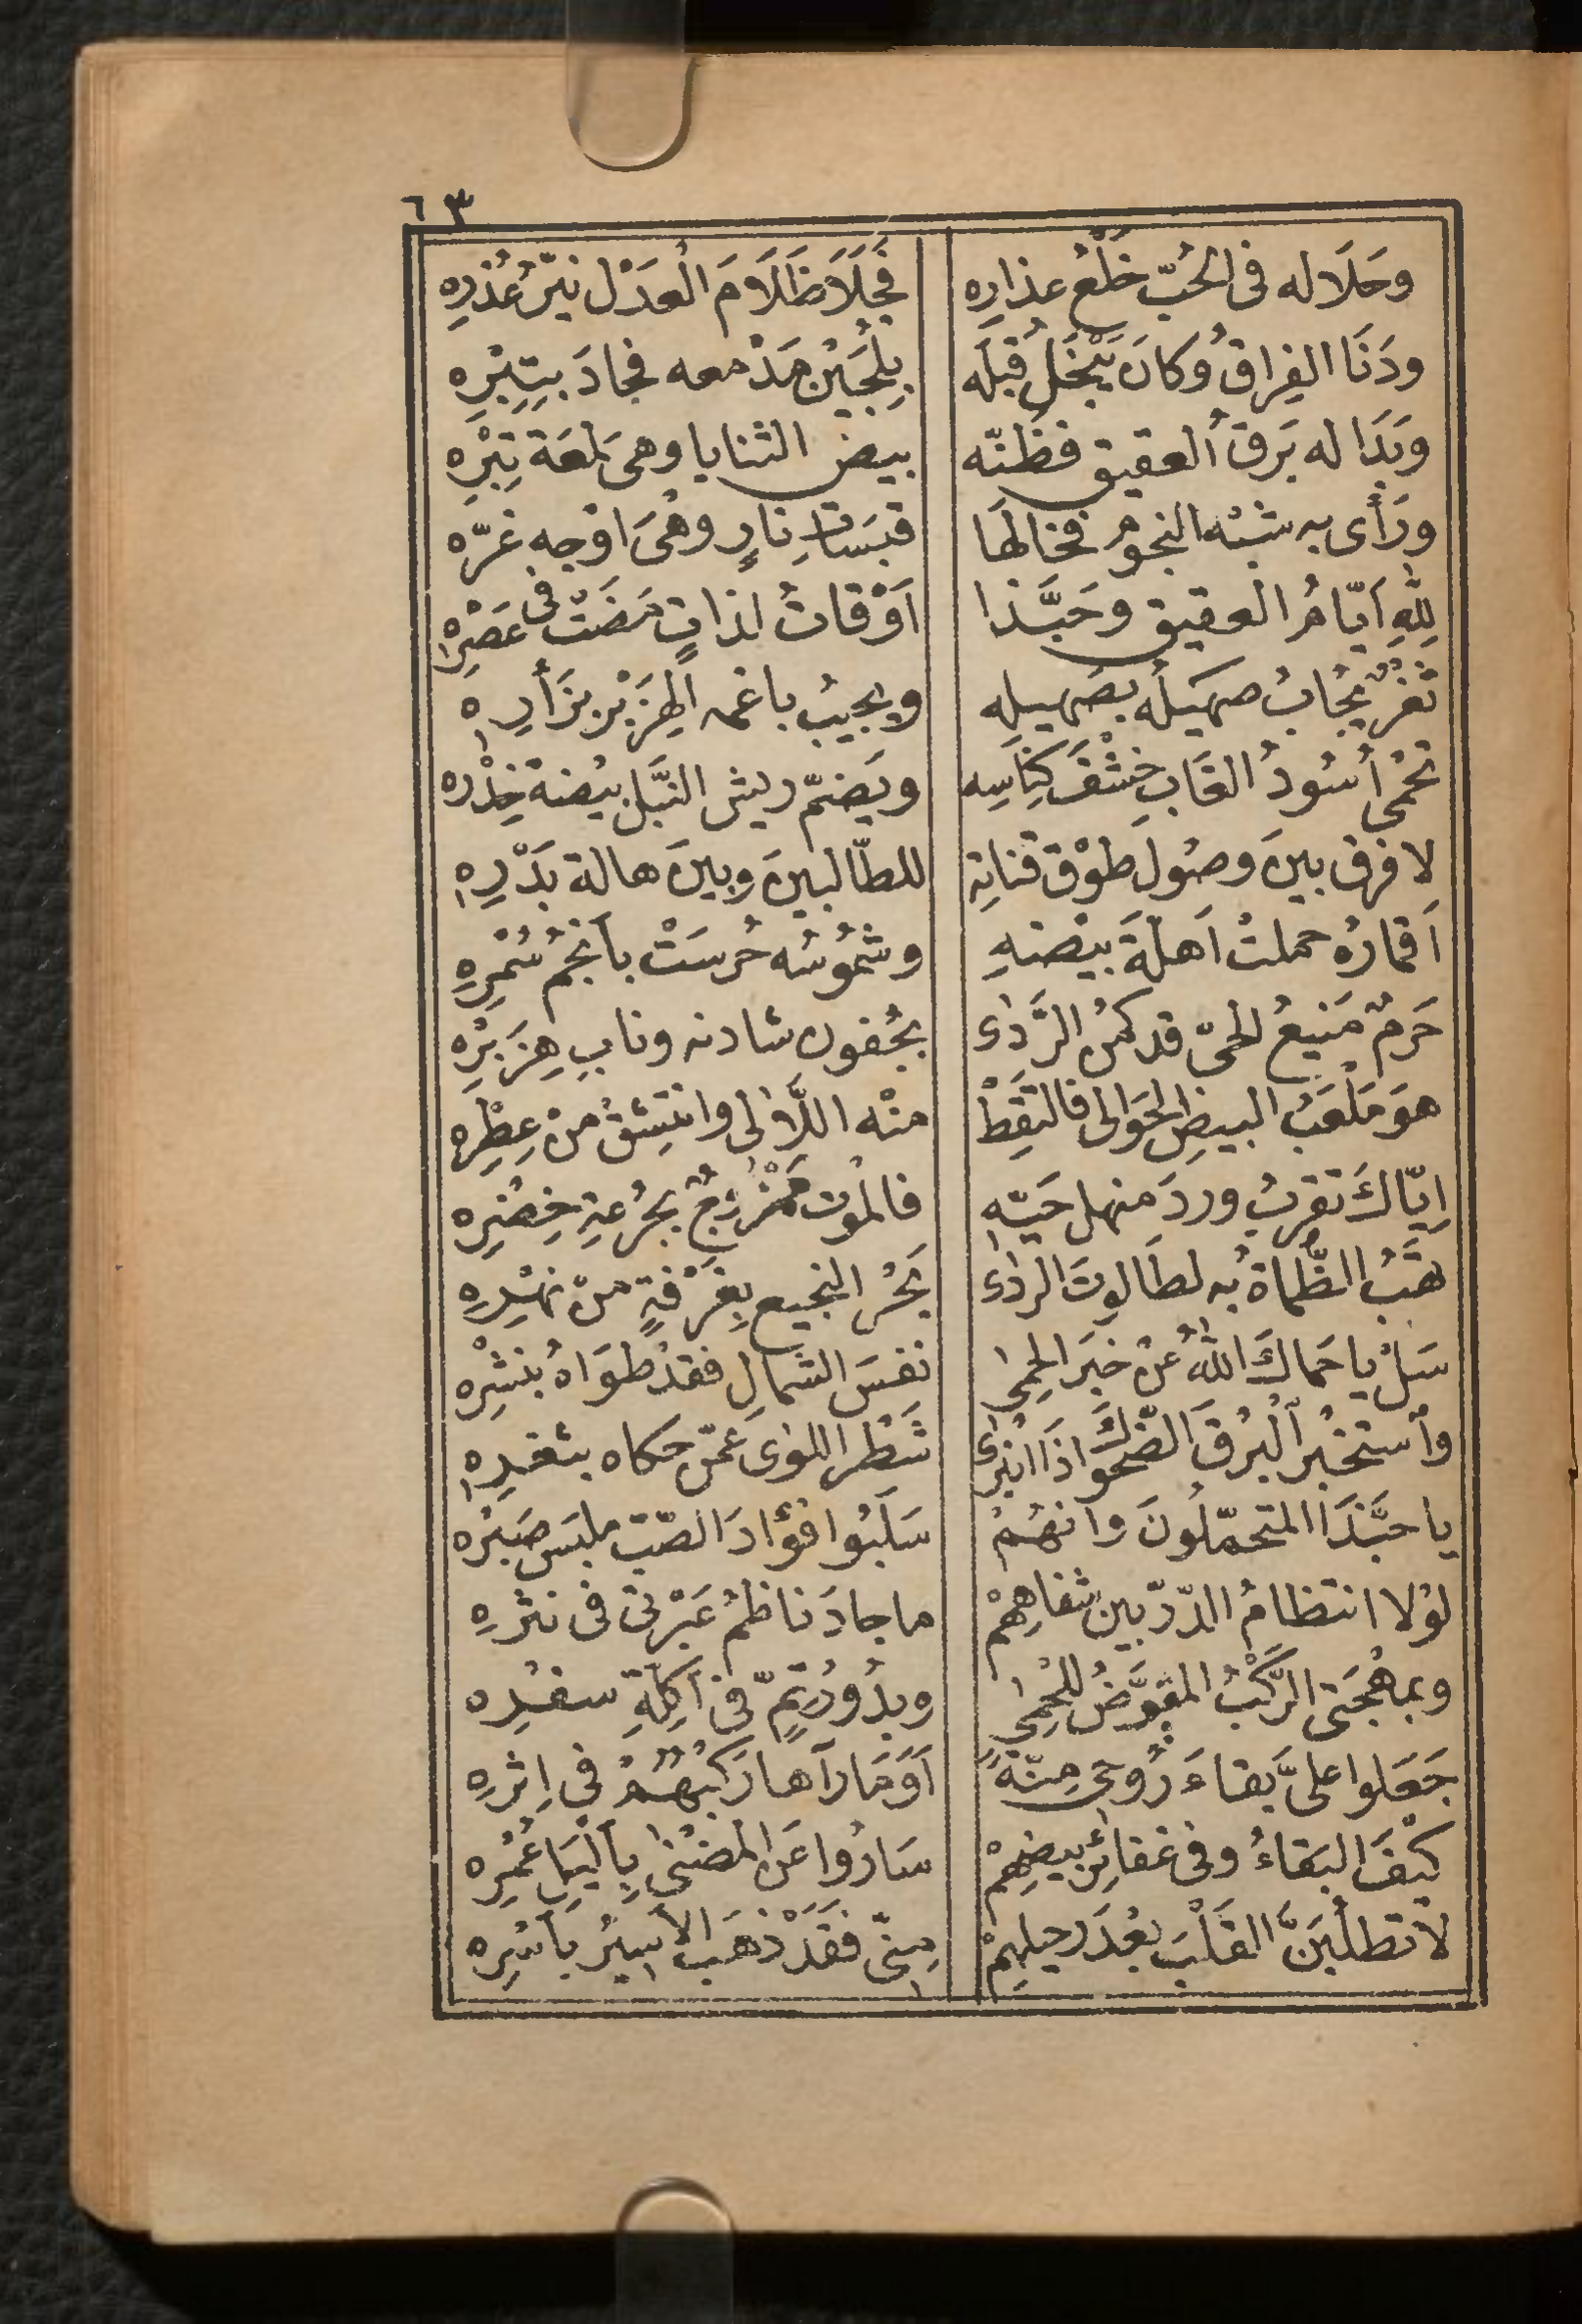 ٦٣
وحَلَا له فى الحُبّ خَلْعُ عذارِه فَجَلَا ظَلَامَ الْعَذْلِ نيّرُ عُذرِهِ
ودَنَا الفِراقُ وكانَ يَبْخَلُ قبلَه بِلُجَيْنِ مَدْمعه فجادَ بِتِبْرِه
وبَدَا له بَرقُ العقيقِ فظنّه بيضَ الثنايا وهى لمعَة تِبْرِه
ورَأى به شبْه النجوْم فخالَهَا قبَسَاتِ نارٍ وهْىَ اوْجه غرّه
لِلّٰهِ اَيّامُ العقيقِ وحَبَّذا اَوْقاتُ لذاتٍ مَضَتْ فى عَصْرِه
ثغرٌ يُجابُ صهيلُه بصَهيلِه ويجيبُ باغمه الهِزَبْر بزَأرِه
تحْمى أسُودُ الغَابِ خِشْفَ كِنَاسِه ويَضمّ ريش النَّبْل بيْضةَ خِدْره
لا فرق بينَ وصُولِ طوْق قناتِهِ للطّالبينَ وبينَ هالة بَدْرِه
اَقمارُه حملتْ اَهلّةَ بيْضهِ وشمُوسُه حُرسَتْ بأنجُم سُمْرِهِ
حَرمٌ مَنيعُ الحىّ قد كمنُ الرَّدٰى بجُفونِ شادنه ونابِ هِزَبْرِه
هوَ مَلْعَبُ البيضِ الحَوَالى فالتقِطْ منْه اللَّالى وانتشقْ منْ عِطْرِه
اِيّاكَ تقربُ وردَ منهلِ حَيّهِ فالموْت ممْزُوجٌ بجُرْعةِ خِضْرِه
هبَّتُ الظُّماةُ به لطَالوتَ الردٰى بَحْرُ النجيع بِغَرْفةٍ منْ نهْرِهِ
سَلْ يا حَماكَ اللّٰهُ عنْ خبَر الحِمٰى نفسَ الشمالِ فقدْ طوَاهُ بنشْرِه
وأستخبر ٱلْبرْقَ الضّحوكَ اذَا انْبَرٰى شَطْر اللوٰى عَمّنْ حكاه بثغرِه
يا حَبَّذَا المتحمّلُونَ وانهُمْ سَلَبُوا فؤادَ الصّبّ ملبَس صَبْرِه
لوْلا انتظامُ الدّرّ بينَ شفاهِهِمْ ما جادَ ناظمُ عَبْرتى فى نثرِهِ
وبمُهْجَتى الرَّكْبُ المقوَّضُ للْحِمٰى وبدُورُ تمٍّ فى اَكِلّةِ سفْرِه
جَعَلوا علىَّ بقاءَ رُوحى مِنّةً اَوَمَا رآها رَكبُهُمْ فى اِثرِهِ
كيْفَ البَقاءُ وفى غفائِرِ بيضِهِمْ سَارُوا عَن المضْنٰى بِأليَا عُمْرِه
لا تطلُبَنَّ القَلْبَ بعْدَ رحيلِهِمْ مِنّى فقَدْ ذهَبَ الأسيْرُ بأسْرِه